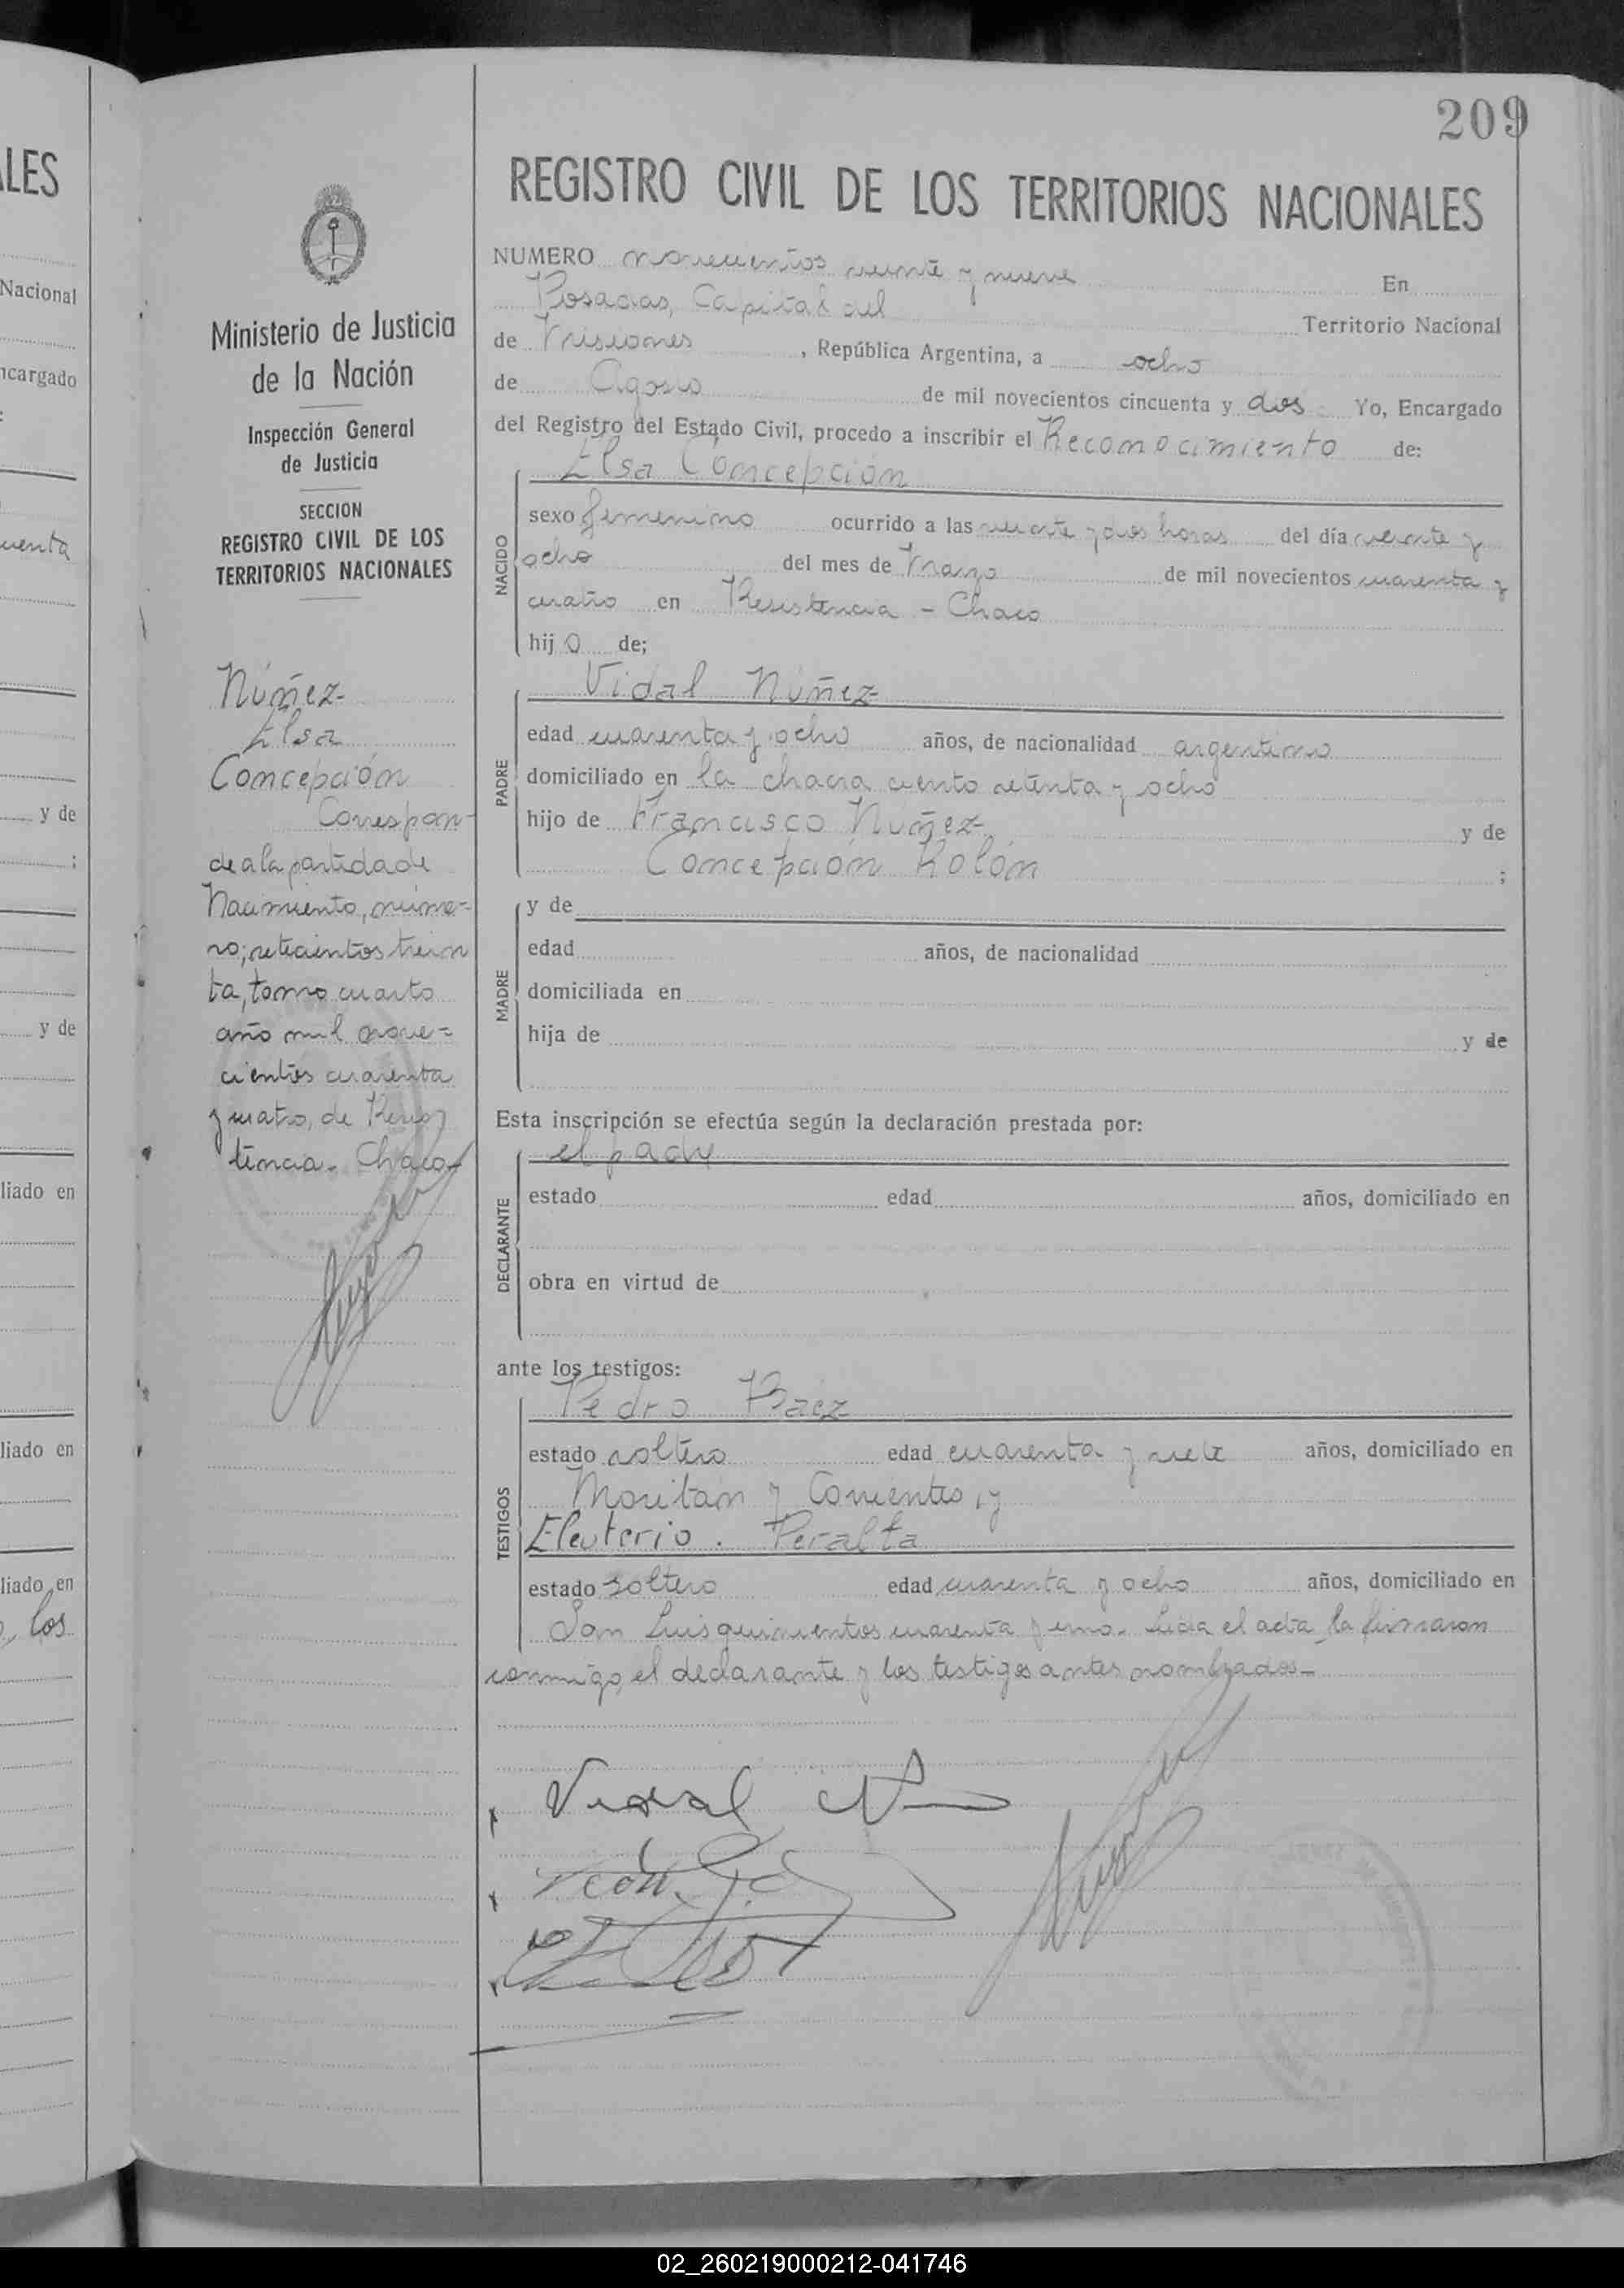 LES
Nacional
ncargado
:
uenta
y de
;
y de
liado en
liado en
liado en
los
209
Ministerio de Justicia
de la Nación
Inspección General
de Justicia
SECCION
REGISTRO CIVIL DE LOS
TERRITORIOS NACIONALES
Núñez
Elsa
Concepción
Correspon-
de a la partida de
Nacimiento, núme-
ro; setecientos trein
ta, tomo cuarto
año mil nove=
cientos cuarenta
y cuatro, de Resis
tencia. Chaco
REGISTRO CIVIL DE LOS TERRITORIOS NACIONALES
NUMERO novecientos veinte y nueve En
Posadas, Capital del Territorio Nacional
de Misiones, República Argentina, a ocho
de Agosto de mil novecientos cincuenta y dos Yo, Encargado
del Registro del Estado Civil, procedo a inscribir el Reconocimiento de:
Elsa Concepción
NACIDO
sexo femenino ocurrido a las veinte y dos horas del día veinte y
ocho del mes de Marzo de mil novecientos cuarenta y
cuatro en Resistencia - Chaco
hij o de;
PADRE
Vidal Núñez
edad cuarenta y ocho años, de nacionalidad argentino
domiciliado en la chacra ciento setenta y ocho
hijo de Francisco Núñez y de
Concepción Rolón ;
MADRE
y de
edad años, de nacionalidad
domiciliada en
hija de y de
Esta inscripción se efectúa según la declaración prestada por:
DECLARANTE
el padre
estado edad años, domiciliado en
obra en virtud de
ante los testigos:
TESTIGOS
Pedro Báez
estado soltero edad cuarenta y siete años, domiciliado en
Moritán y Corrientes, y
Eleuterio Peralta
estado soltero edad cuarenta y ocho años, domiciliado en
San Luis quinientos cuarenta y uno. Leida el acta la firmaron
conmigo, el declarante y los testigos antes nombrados-
Vidal
02_260219000212-041746